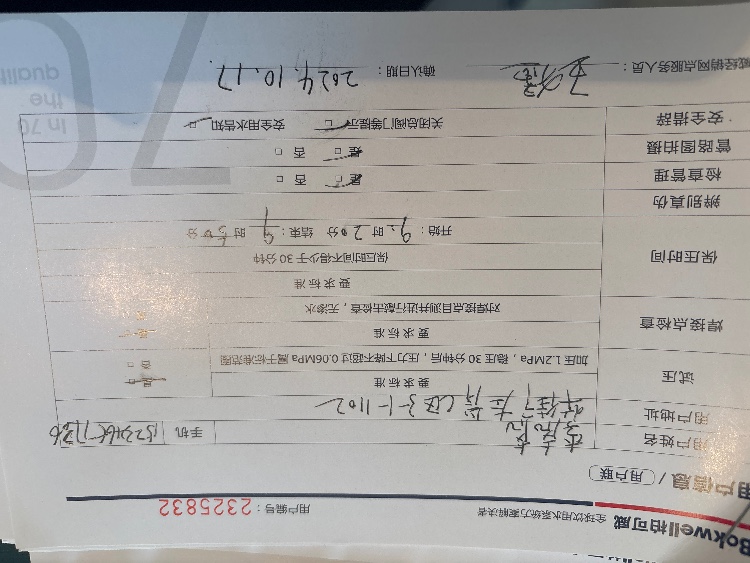 Bokwell柏可威 全球饮用水系统方案解决者
用户编号：2325832
用户信息 / 用户联
用户姓名 手机
用户地址 C区3-1-1102
试压 要求标准 是 否
加压1.2MPa，稳压30分钟后，压力下降不超过0.06MPa属于标准范围
焊接点检查 要求标准
对焊接点目测并进行敲击检查，无渗水
保压时间 要求标准
保压时间不得少于30分钟
开始：9 时 20 分 结束：9 时 50 分
辨别真伪
检查管理 是 否
管路图拍摄 是 否
安全措辞 关闭总阀门等提示 安全用水告知
威经销网点服务人员： 确认日期：2024.10.17
In 70
the
qualit
70